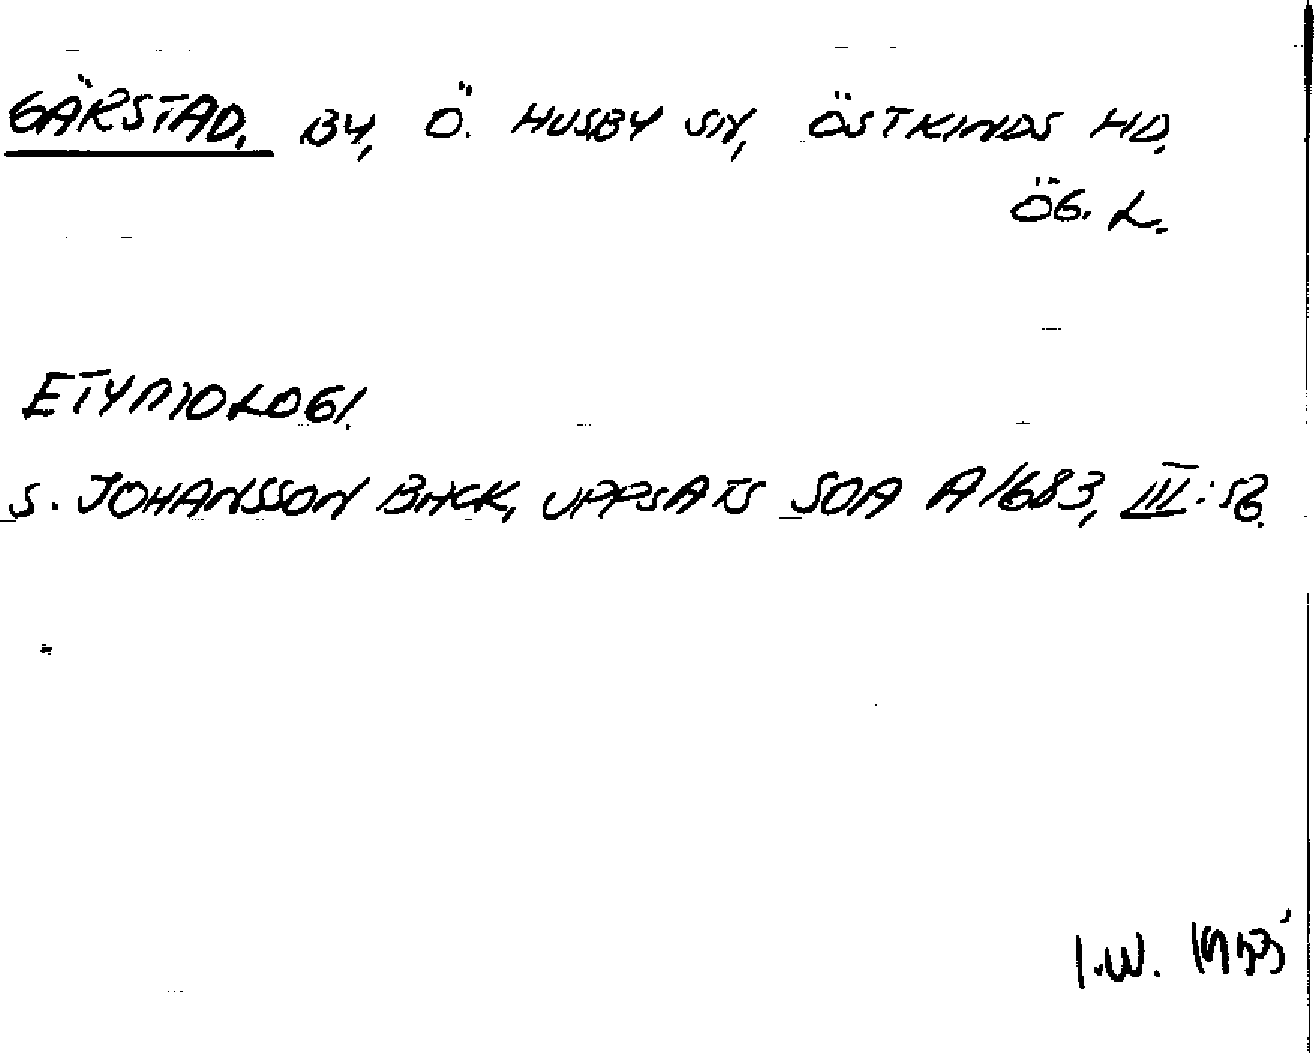 GÄRSTAD, BY, Ö. HUSBY SN, ÖSTKINDS HD.
ÖG. L.
ETYMOLOGI.
S. JOHANSSON BACK, UPPSATS SOA A1683, III:
I.W.